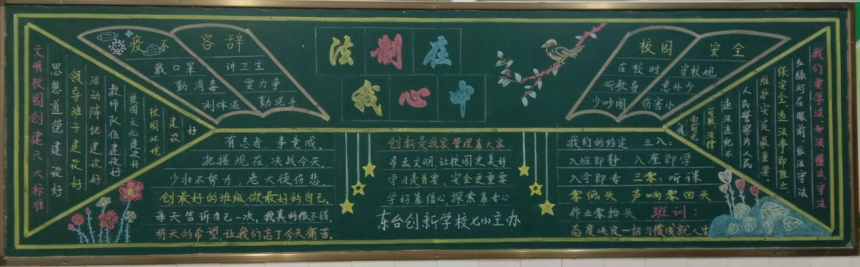 文明校园创建六大标准
思想道德建设好
领导班子建设好
活动阵地建设好
教师队伍建设好
校园文化建设好
校园环境
建设好
疫不容辞
戴口罩 讲卫生
勤消毒 要力争
测体温 勤洗手
法制在
我心中
校园安全
在校时 守校规
听教导 意外少
少吵闹 伤害小
我们要学法知法懂法守法
红绿灯在眼前依法守法
保安全 违法事即阻止
维护安定最重要
人民警察为人民
违法违纪不
有志者,事竟成。
把握现在 决战今天
少壮不努力,老大徒伤悲
创最好的班级 做最好的自己
每天告诉自己一次,我真的很不错
明天的希望,让我们忘了今天痛苦。
创新是我家 管理靠大家
言文明 让校园更美好
学习最首要,安全更重要
学好靠信心 探索靠专心
东台创新学校七(1)主办
我们的约定 三入:
入班即静 入座即学
入学即专 三零:听课
零低头 声响零回头
作业零抬头 班训:
高度决定一切 习惯成就人生